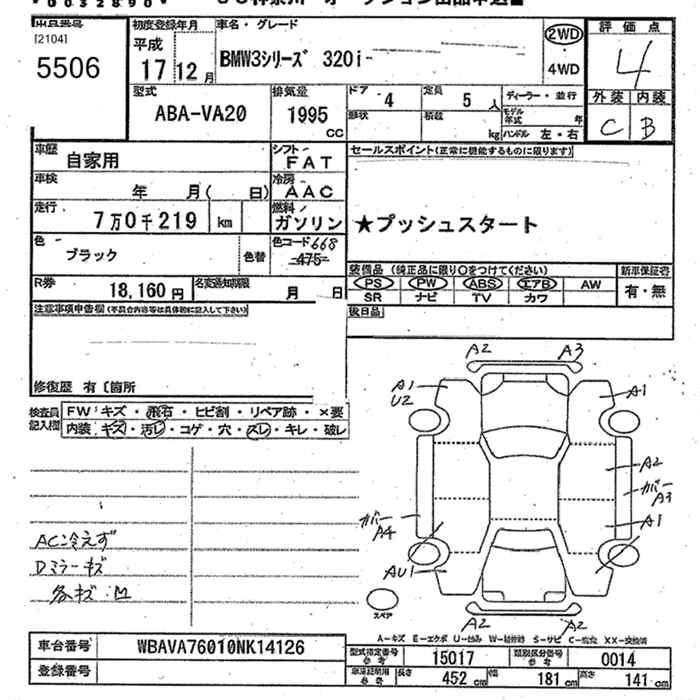 初度登録年月
車名・グレード
評価点
[2104]
5506
平成
17 年 12 月
BMW3シリーズ 320i
2WD
4WD
4
外装 内装
C B
型式
ABA-VA20
排気量
1995
CC
ドア 4
定員 5 人
ディーラー・並行
形状
積載 kg
モデル年式 年
ハンドル 左・右
車歴
自家用
シフト
FAT
セールスポイント(正常に機能するものに限ります)
車検
年 月( 日)
冷房
AAC
走行
7万0千219 km
燃料
ガソリン
★プッシュスタート
色
ブラック
色替
色コード 668
475
装備品 (純正品に限り○をつけてください)
新車保証書
PS PW ABS エアB AW
SR ナビ TV カワ
有・無
R券
18,160 円
名変通知期限
月 日
後日品
注意事項申告欄(不具合内容等は具体的に記入して下さい)
修復歴 有〔箇所
検査員
記入欄
FW:キズ・飛石・ヒビ割・リペア跡・×要
内装:キズ・汚レ・コゲ・穴・スレ・キレ・破レ
A2 A3
A1
U2
A1
A2
カバー
A3
カバー
A4
A1
AU1
A2 A2
スペア
AC冷えず
Dミラーキズ
各キズ:M
A-キズ E-エクボ U-凹み W-補修跡 S-サビ C-腐食 XX-交換済
車台番号
WBAVA76010NK14126
登録番号
型式指定番号
参考
15017
類別区分番号
参考
0014
参考
長さ 452 cm
幅 181 cm
高さ 141 cm